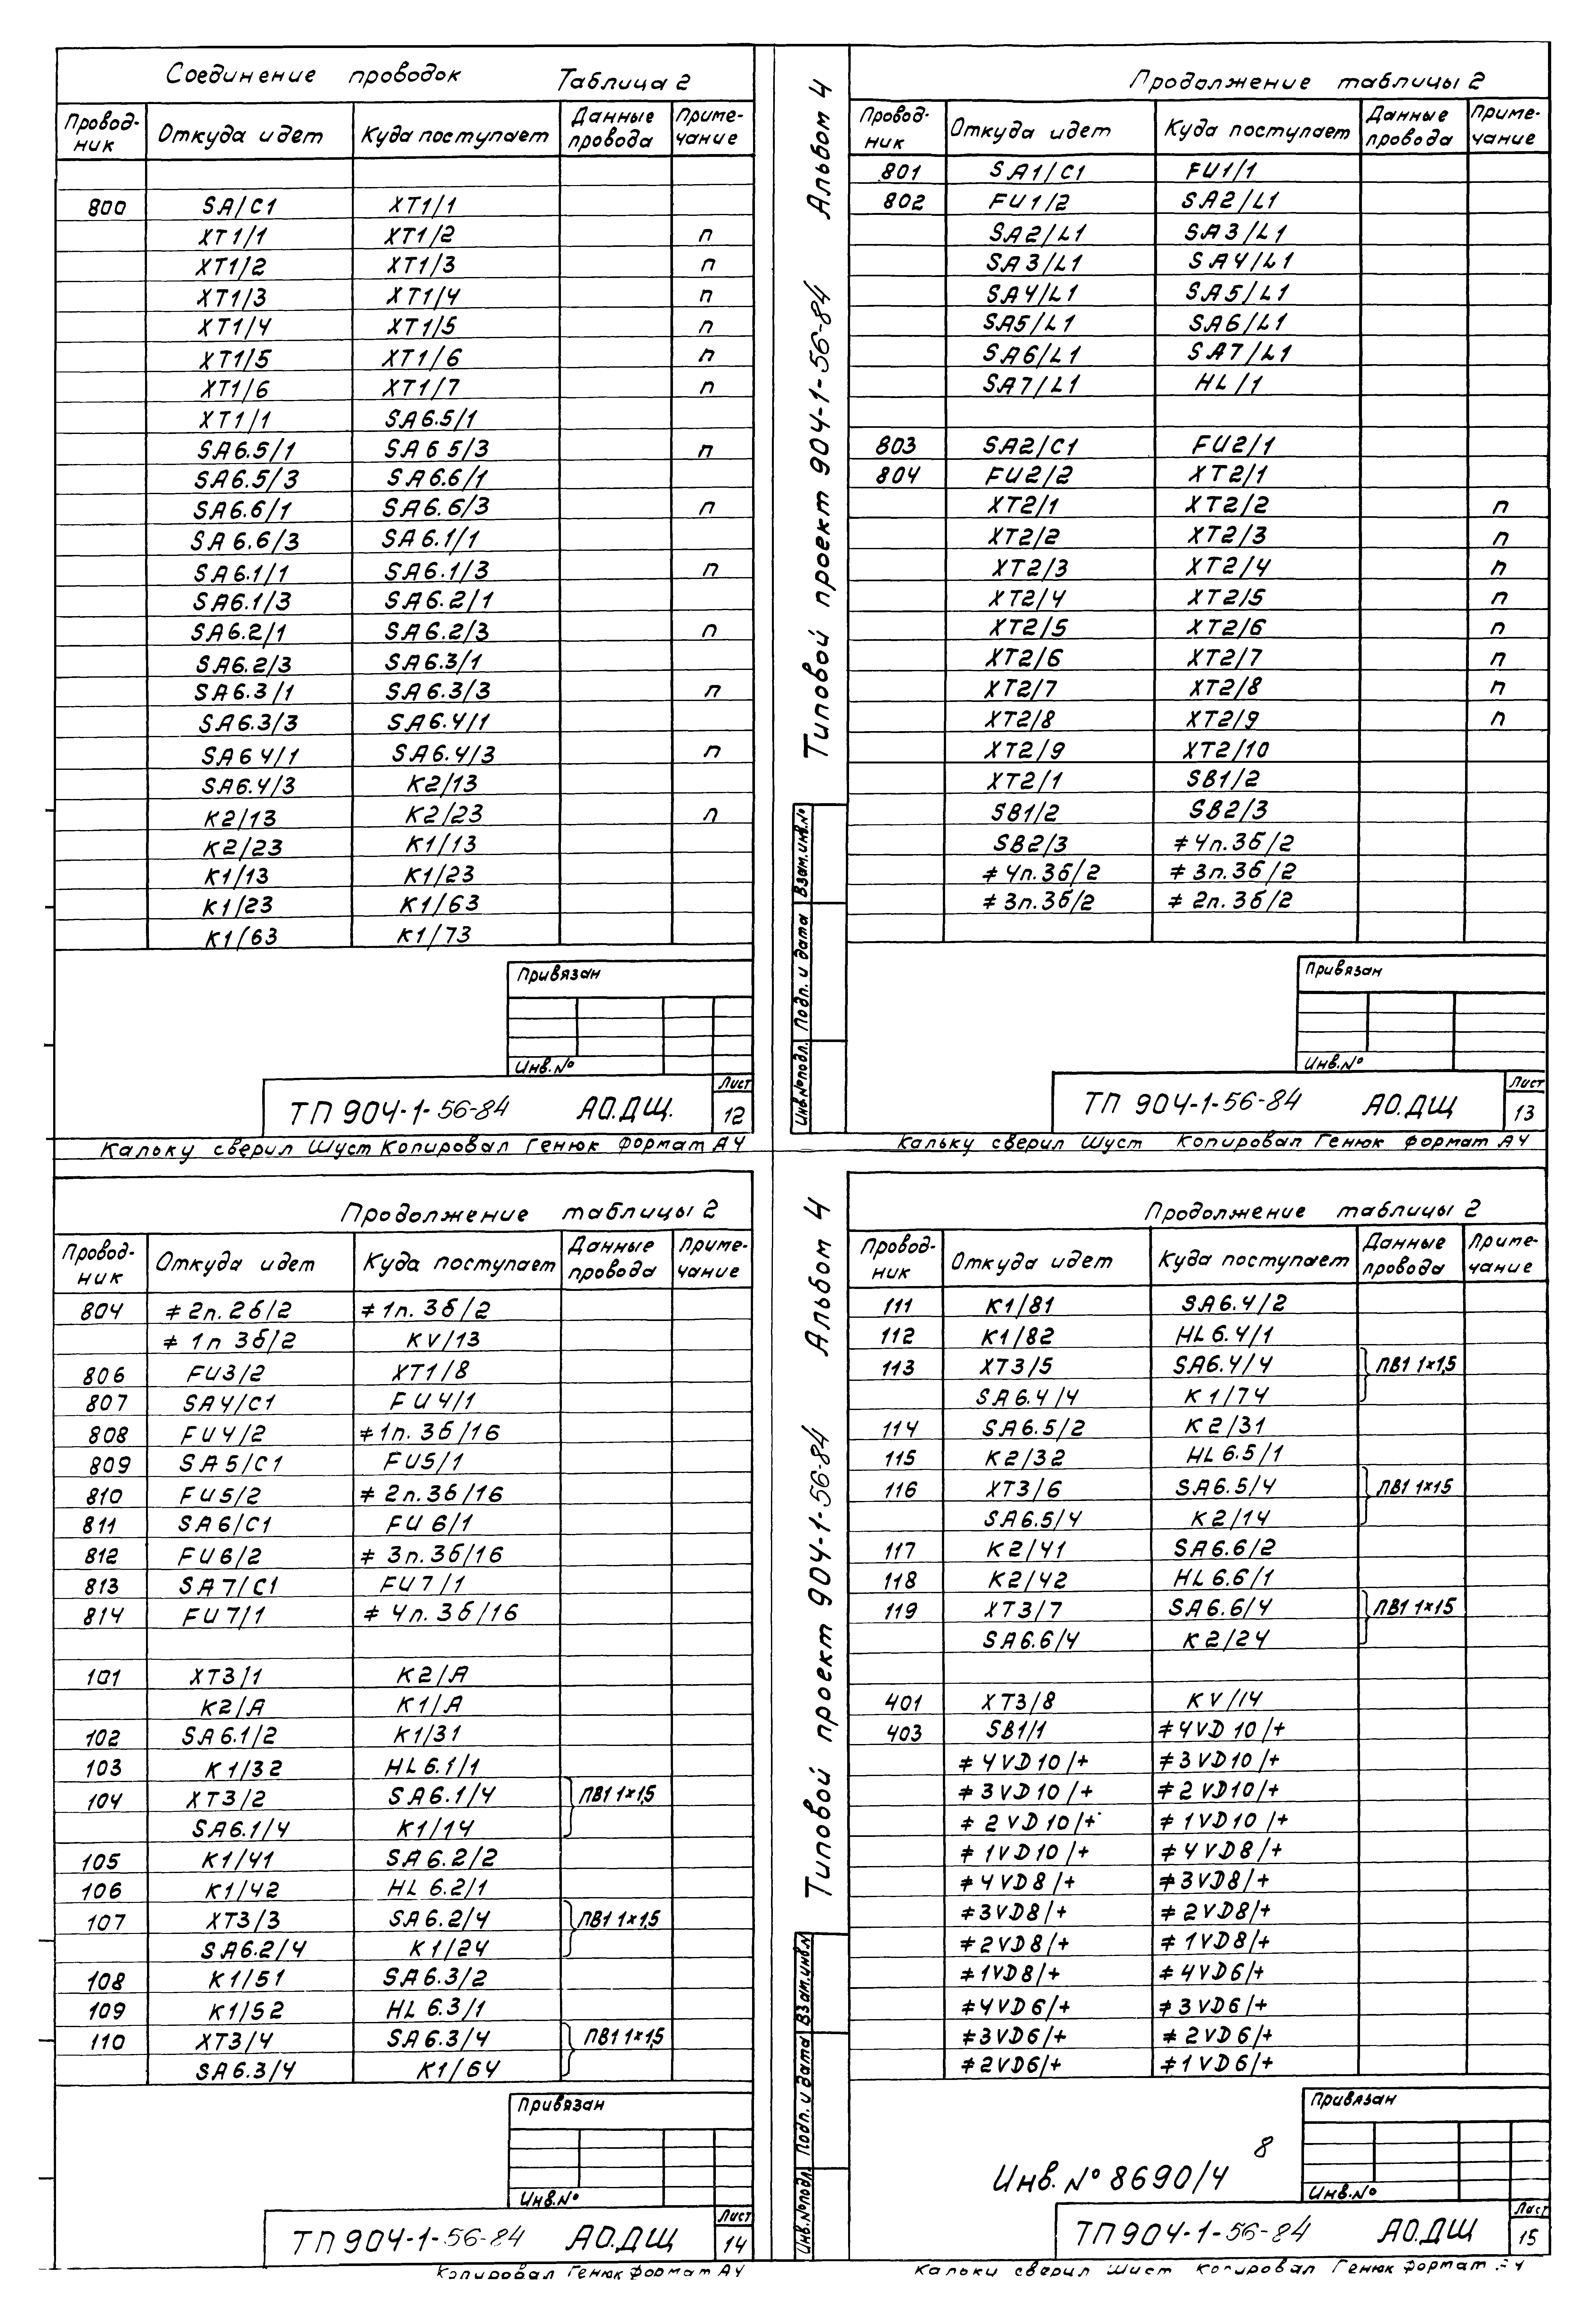 Соединение проводок Таблица 2
Провод-ник Откуда идет Куда поступает Данные провода Приме-чание
800 SA/C1 XT1/1
XT1/1 XT1/2 п
XT1/2 XT1/3 п
XT1/3 XT1/4 п
XT1/4 XT1/5 п
XT1/5 XT1/6 п
XT1/6 XT1/7 п
XT1/1 SA6.5/1
SA6.5/1 SA6 5/3 п
SA6.5/3 SA6.6/1
SA6.6/1 SA6.6/3 п
SA6.6/3 SA6.1/1
SA6.1/1 SA6.1/3 п
SA6.1/3 SA6.2/1
SA6.2/1 SA6.2/3 п
SA6.2/3 SA6.3/1
SA6.3/1 SA6.3/3 п
SA6.3/3 SA6.4/1
SA6 4/1 SA6.4/3 п
SA6.4/3 K2/13
K2/13 K2/23 п
K2/23 K1/13
K1/13 K1/23
K1/23 K1/63
K1/63 K1/73
Привязан
Инв.№
ТП 904-1-56-84 АО.ДЩ. Лист 12
Кальку сверил Шуст Копировал Генюк формат А4
Типовой проект 904-1-56-84 Альбом 4
Инв.№подл. Подп. и дата Взам.инв.№
Продолжение таблицы 2
Провод-ник Откуда идет Куда поступает Данные провода Приме-чание
801 SA1/C1 FU1/1
802 FU1/2 SA2/L1
SA2/L1 SA3/L1
SA3/L1 SA4/L1
SA4/L1 SA5/L1
SA5/L1 SA6/L1
SA6/L1 SA7/L1
SA7/L1 HL/1
803 SA2/C1 FU2/1
804 FU2/2 XT2/1
XT2/1 XT2/2 п
XT2/2 XT2/3 п
XT2/3 XT2/4 п
XT2/4 XT2/5 п
XT2/5 XT2/6 п
XT2/6 XT2/7 п
XT2/7 XT2/8 п
XT2/8 XT2/9 п
XT2/9 XT2/10
XT2/1 SB1/2
SB1/2 SB2/3
SB2/3 ≠4п.3б/2
≠4п.3б/2 ≠3п.3б/2
≠3п.3б/2 ≠2п.3б/2
Привязан
Инв.№
ТП 904-1-56-84 АО.ДЩ Лист 13
Кальку сверил Шуст Копировал Генюк формат А4
Продолжение таблицы 2
Провод-ник Откуда идет Куда поступает Данные провода Приме-чание
804 ≠2п.2б/2 ≠1п.3б/2
≠1п 3б/2 KV/13
806 FU3/2 XT1/8
807 SA4/C1 FU4/1
808 FU4/2 ≠1п.3б/16
809 SA5/C1 FU5/1
810 FU5/2 ≠2п.3б/16
811 SA6/C1 FU6/1
812 FU6/2 ≠3п.3б/16
813 SA7/C1 FU7/1
814 FU7/1 ≠4п.3б/16
101 XT3/1 K2/A
K2/A K1/A
102 SA6.1/2 K1/31
103 K1/32 HL6.1/1
104 XT3/2 SA6.1/4 ПВ1 1×1,5
SA6.1/4 K1/14
105 K1/41 SA6.2/2
106 K1/42 HL6.2/1
107 XT3/3 SA6.2/4 ПВ1 1×1,5
SA6.2/4 K1/24
108 K1/51 SA6.3/2
109 K1/52 HL6.3/1
110 XT3/4 SA6.3/4 ПВ1 1×1,5
SA6.3/4 K1/64
Привязан
Инв.№
ТП 904-1-56-84 АО.ДЩ Лист 14
Копировал Генюк формат А4
Типовой проект 904-1-56-84 Альбом 4
Инв.№подл. Подп. и дата Взам.инв.№
Продолжение таблицы 2
Провод-ник Откуда идет Куда поступает Данные провода Приме-чание
111 K1/81 SA6.4/2
112 K1/82 HL6.4/1
113 XT3/5 SA6.4/4 ПВ1 1×1,5
SA6.4/4 K1/74
114 SA6.5/2 K2/31
115 K2/32 HL6.5/1
116 XT3/6 SA6.5/4 ПВ1 1×1.5
SA6.5/4 K2/14
117 K2/41 SA6.6/2
118 K2/42 HL6.6/1
119 XT3/7 SA6.6/4 ПВ1 1×1.5
SA6.6/4 K2/24
401 XT3/8 KV/14
403 SB1/1 ≠4VD10/+
≠4VD10/+ ≠3VD10/+
≠3VD10/+ ≠2VD10/+
≠2VD10/+ ≠1VD10/+
≠1VD10/+ ≠4VD8/+
≠4VD8/+ ≠3VD8/+
≠3VD8/+ ≠2VD8/+
≠2VD8/+ ≠1VD8/+
≠1VD8/+ ≠4VD6/+
≠4VD6/+ ≠3VD6/+
≠3VD6/+ ≠2VD6/+
≠2VD6/+ ≠1VD6/+
Привязан
Инв.№
8
Инв.№ 8690/4
ТП 904-1-56-84 АО.ДЩ Лист 15
Кальки сверил Шист Копировал Генюк формат